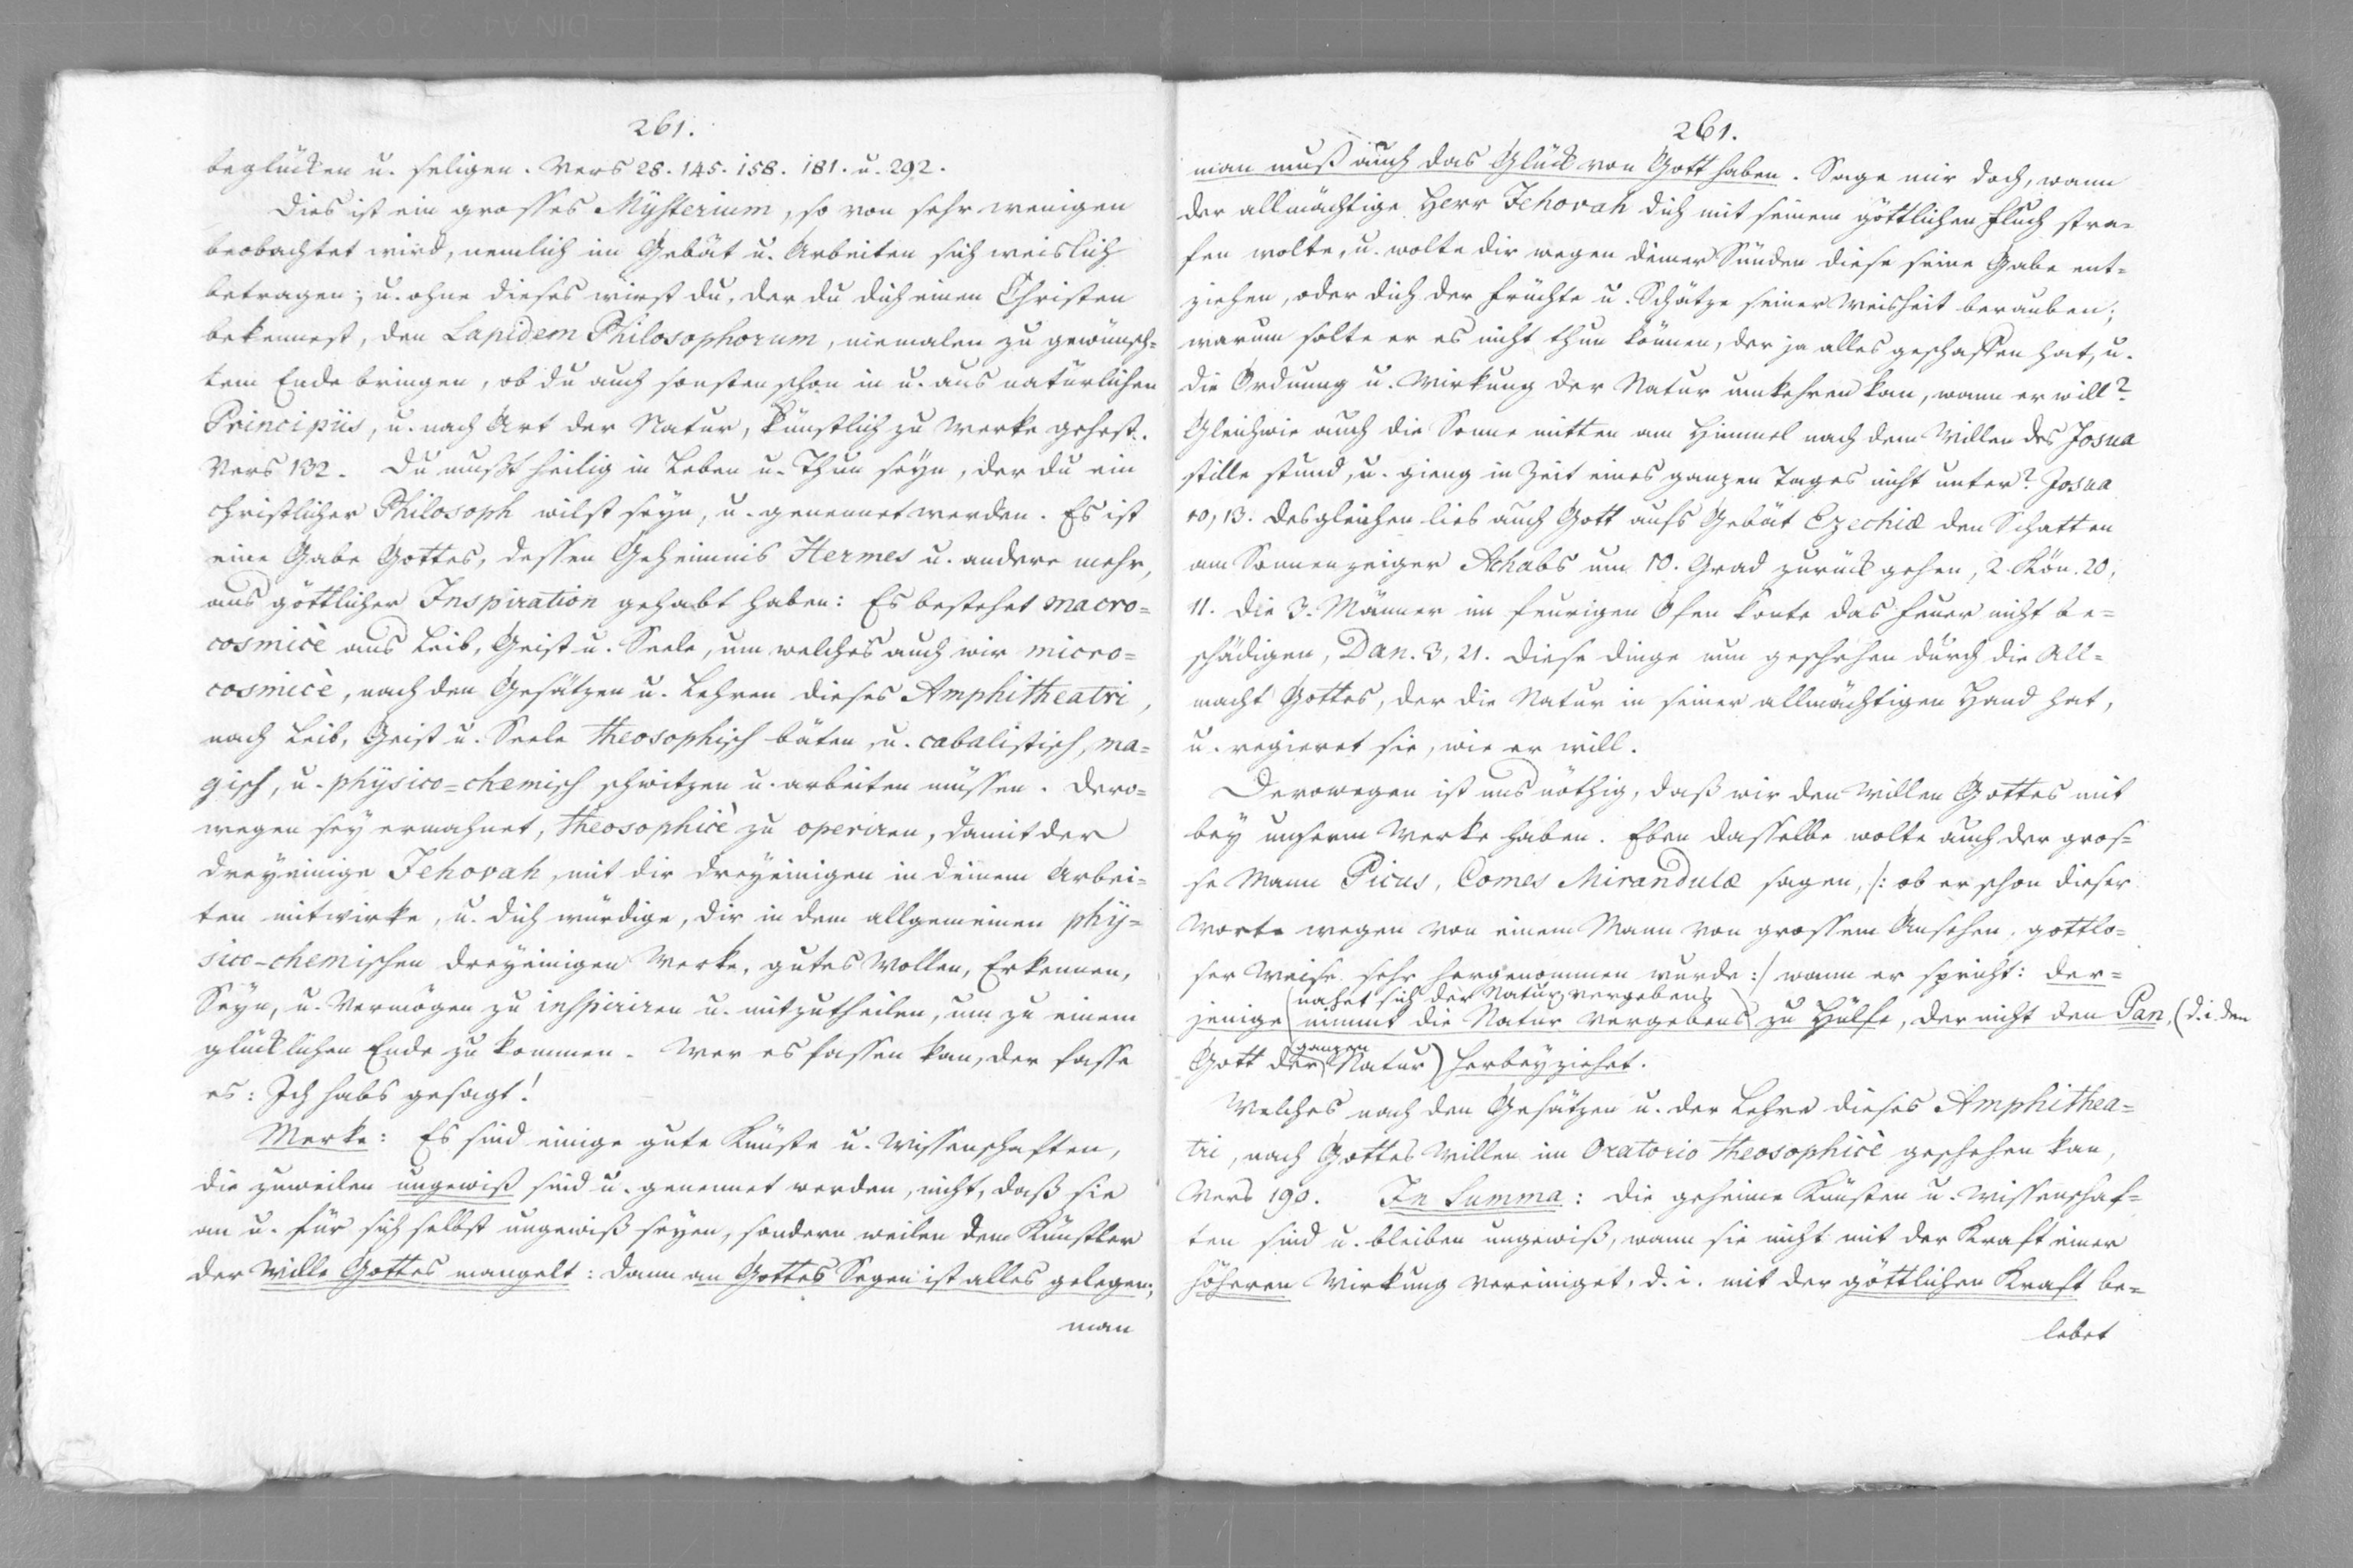 261.
beglücken u. seligen. Vers 28. 145. 158. 181. u. 292.
Dies ist ein grosses Mysterium, so von sehr wenigen
beobachtet wird, nemlich im Gebät u. Arbeiten sich weislich
betragen; u. ohne dieses wirst du, der du dich einen Christen
bekennest, den Lapidem Philosophorum, niemalen zu gewünsch=
tem Ende bringen, ob du auch sonsten schon in u. aus natürlichen
Principiis, u. nach Art der Natur, künstlich zu Werke gehest.
Vers 132. Du mußt heilig in Leben u. Thun seyn, der du ein
christlicher Philosoph wilst seyn, u. genennet werden. Es ist
eine Gabe Gottes, dessen Geheimnis Hermes u. andere mehr,
aus göttlicher Inspiration gehabt haben: Es bestehet macro=
cosmicè aus Leib, Geist u. Seele, um welches auch wir micro=
cosmicè, nach den Gesätzen u. Lehren dieses Amphitheatri,
nach Leib, Geist u. Seele theosophisch bäten, u. cabalistisch, ma=
gisch, u. physico=chemisch schwitzen u. arbeiten müssen. Dero=
wegen sey ermahnet, theosophicè zu operiren, damit der
dreyeinige Jehovah, mit dir dreyeinigen in deinem Arbei=
ten mitwirke, u. dich würdige, dir in dem allgemeinen phy=
sico-chemischen dreyeinigen Werke, gutes Wollen, Erkennen,
Seyn, u. Vermögen zu inspiriren u. mitzutheilen, um zu einem
glücklichen Ende zu kommen. Wer es fassen kan, der fasse
es: Ich habs gesagt!
Merke: Es sind einige gute Künste u. Wissenschaften,
die zuweilen ungewiß sind u. genennet werden, nicht, daß sie
an u. für sich selbst ungewiß seyen, sondern weilen dem Künstler
der Wille Gottes mangelt: dann an Gottes Segen ist alles gelegen;
man
261.
man muß auch das Glück von Gott haben. Sage mir doch, wann
der allmächtige Herr Jehovah dich mit seinem göttlichen Fluch stra=
fen wolte, u. wolte dir wegen deiner Sünden diese seine Gabe ent=
ziehen, oder dich der Früchte u. Schätze seiner Weisheit berauben;
warum solte er es nicht thun können, der ja alles geschaffen hat, u.
die Ordnung u. Wirkung der Natur umkehren kan, wann er will?
Gleichwie auch die Sonne mitten am Himmel nach dem Willen des Josua
stille stund, u. gieng in Zeit eines ganzen Tages nicht unter? Josua
10, 13. desgleichen lies auch Gott aufs Gebät Ezechiæ den Schatten
am Sonnenzeiger Achabs um 10. Grad zurück gehen, 2. Kön. 20,
11. Die 3. Männer im feurigen Ofen konte das Feuer nicht be=
schädigen, Dan. 3, 21. Diese Dinge nun geschehen durch die All=
macht Gottes, der die Natur in seiner allmächtigen Hand hat,
u. regieret sie, wie er will.
Derowegen ist uns nöthig, daß wir den Willen Gottes mit
bey unserm Werke haben. Eben dasselbe wolte auch der gros=
se Mann Picus, Comes Mirandulæ sagen, /: ob er schon dieser
Worte wegen von einem Mann von grossem Ansehen, gottlo=
ser Weise sehr hergenommen wurde :/ wann er spricht: der=
nahet sich der Natur vergebens
jenige nimmt die Natur vergebens zu Hülfe, der nicht den Pan, (d. i. den
ganzen
Gott der Natur) herbeyziehet.
Welches nach den Gesätzen u. der Lehre dieses Amphithea=
tri, nach Gottes Willen im Oratorio theosophicè geschehen kan,
Vers 190. In Summa: die geheime Künsten u. Wissenschaf=
ten sind u. bleiben ungewiß, wann sie nicht mit der Kraft einer
höheren Wirkung vereiniget, d. i. mit der göttlichen Kraft be=
lebet